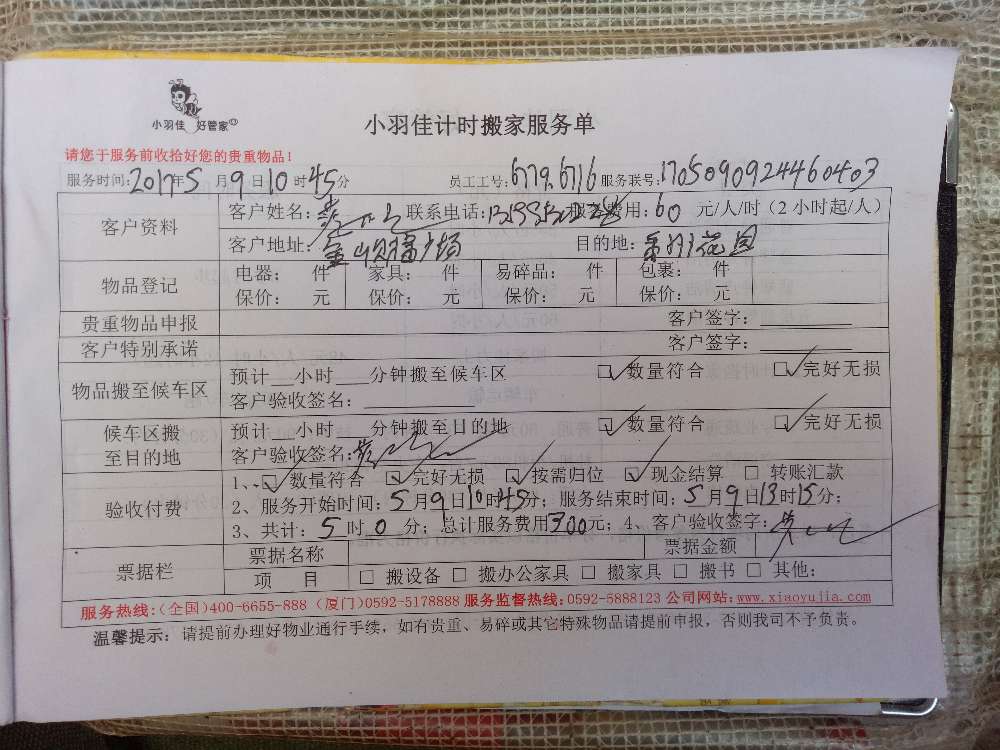 小羽佳 好管家
小羽佳计时搬家服务单
请您于服务前收拾好您的贵重物品！
服务时间：2017年5月9日10时45分 员工工号：6779.6716 服务联号：1705090924460403
客户资料 客户姓名： 联系电话： 服务费用：60元/人/时（2小时起/人）
客户地址： 广场 目的地： 花园
物品登记 电器： 件 家具： 件 易碎品： 件 包裹： 件
保价： 元 保价： 元 保价： 元 保价： 元
贵重物品申报 客户签字：
客户特别承诺 客户签字：
物品搬至候车区 预计__小时___分钟搬至候车区 ☑数量符合 ☑完好无损
客户验收签名：
候车区搬至目的地 预计___小时___分钟搬至目的地 ☑数量符合 ☑完好无损
客户验收签名：
验收付费 1、☑数量符合 ☑完好无损 ☑按需归位 ☑现金结算 □转账汇款
2、服务开始时间：5月9日10时45分；服务结束时间：5月9日13时15分：
3、共计：5时0分；总计服务费用300元；4、客户验收签字：
票据栏 票据名称 票据金额
项 目 □搬设备 □搬办公家具 □搬家具 □搬书 □其他：
服务热线：(全国)400-6655-888 (厦门)0592-5178888 服务监督热线：0592-5888123 公司网站：www.xiaoyujia.com
温馨提示：请提前办理好物业通行手续，如有贵重、易碎或其它特殊物品请提前申报，否则我司不予负责。